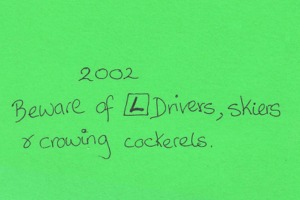 2002
Beware of L Drivers, skiers
& crowing cockerels.